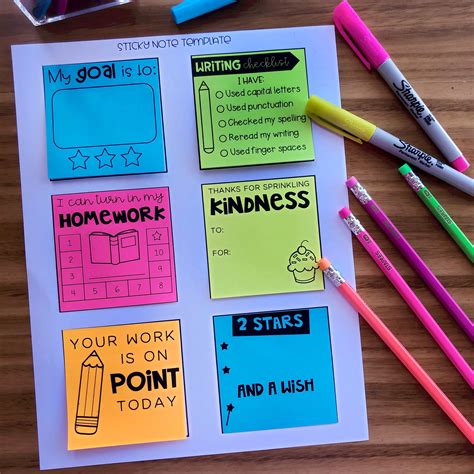 STICKY NOTE TEMPLATE
My goal is to:
WRITING checklist
I HAVE:
Used capital letters
Used punctuation
Checked my spelling
Reread my writing
Used finger spaces
I can turn in my
HOMEWORK
1
2
3
4
5
6
7
8
9
10
THANKS FOR SPRINKLING
KINDNESS
TO:
FOR:
YOUR WORK
IS ON
POINT
TODAY
2 STARS
AND A WISH
Sharpie
Sharpie